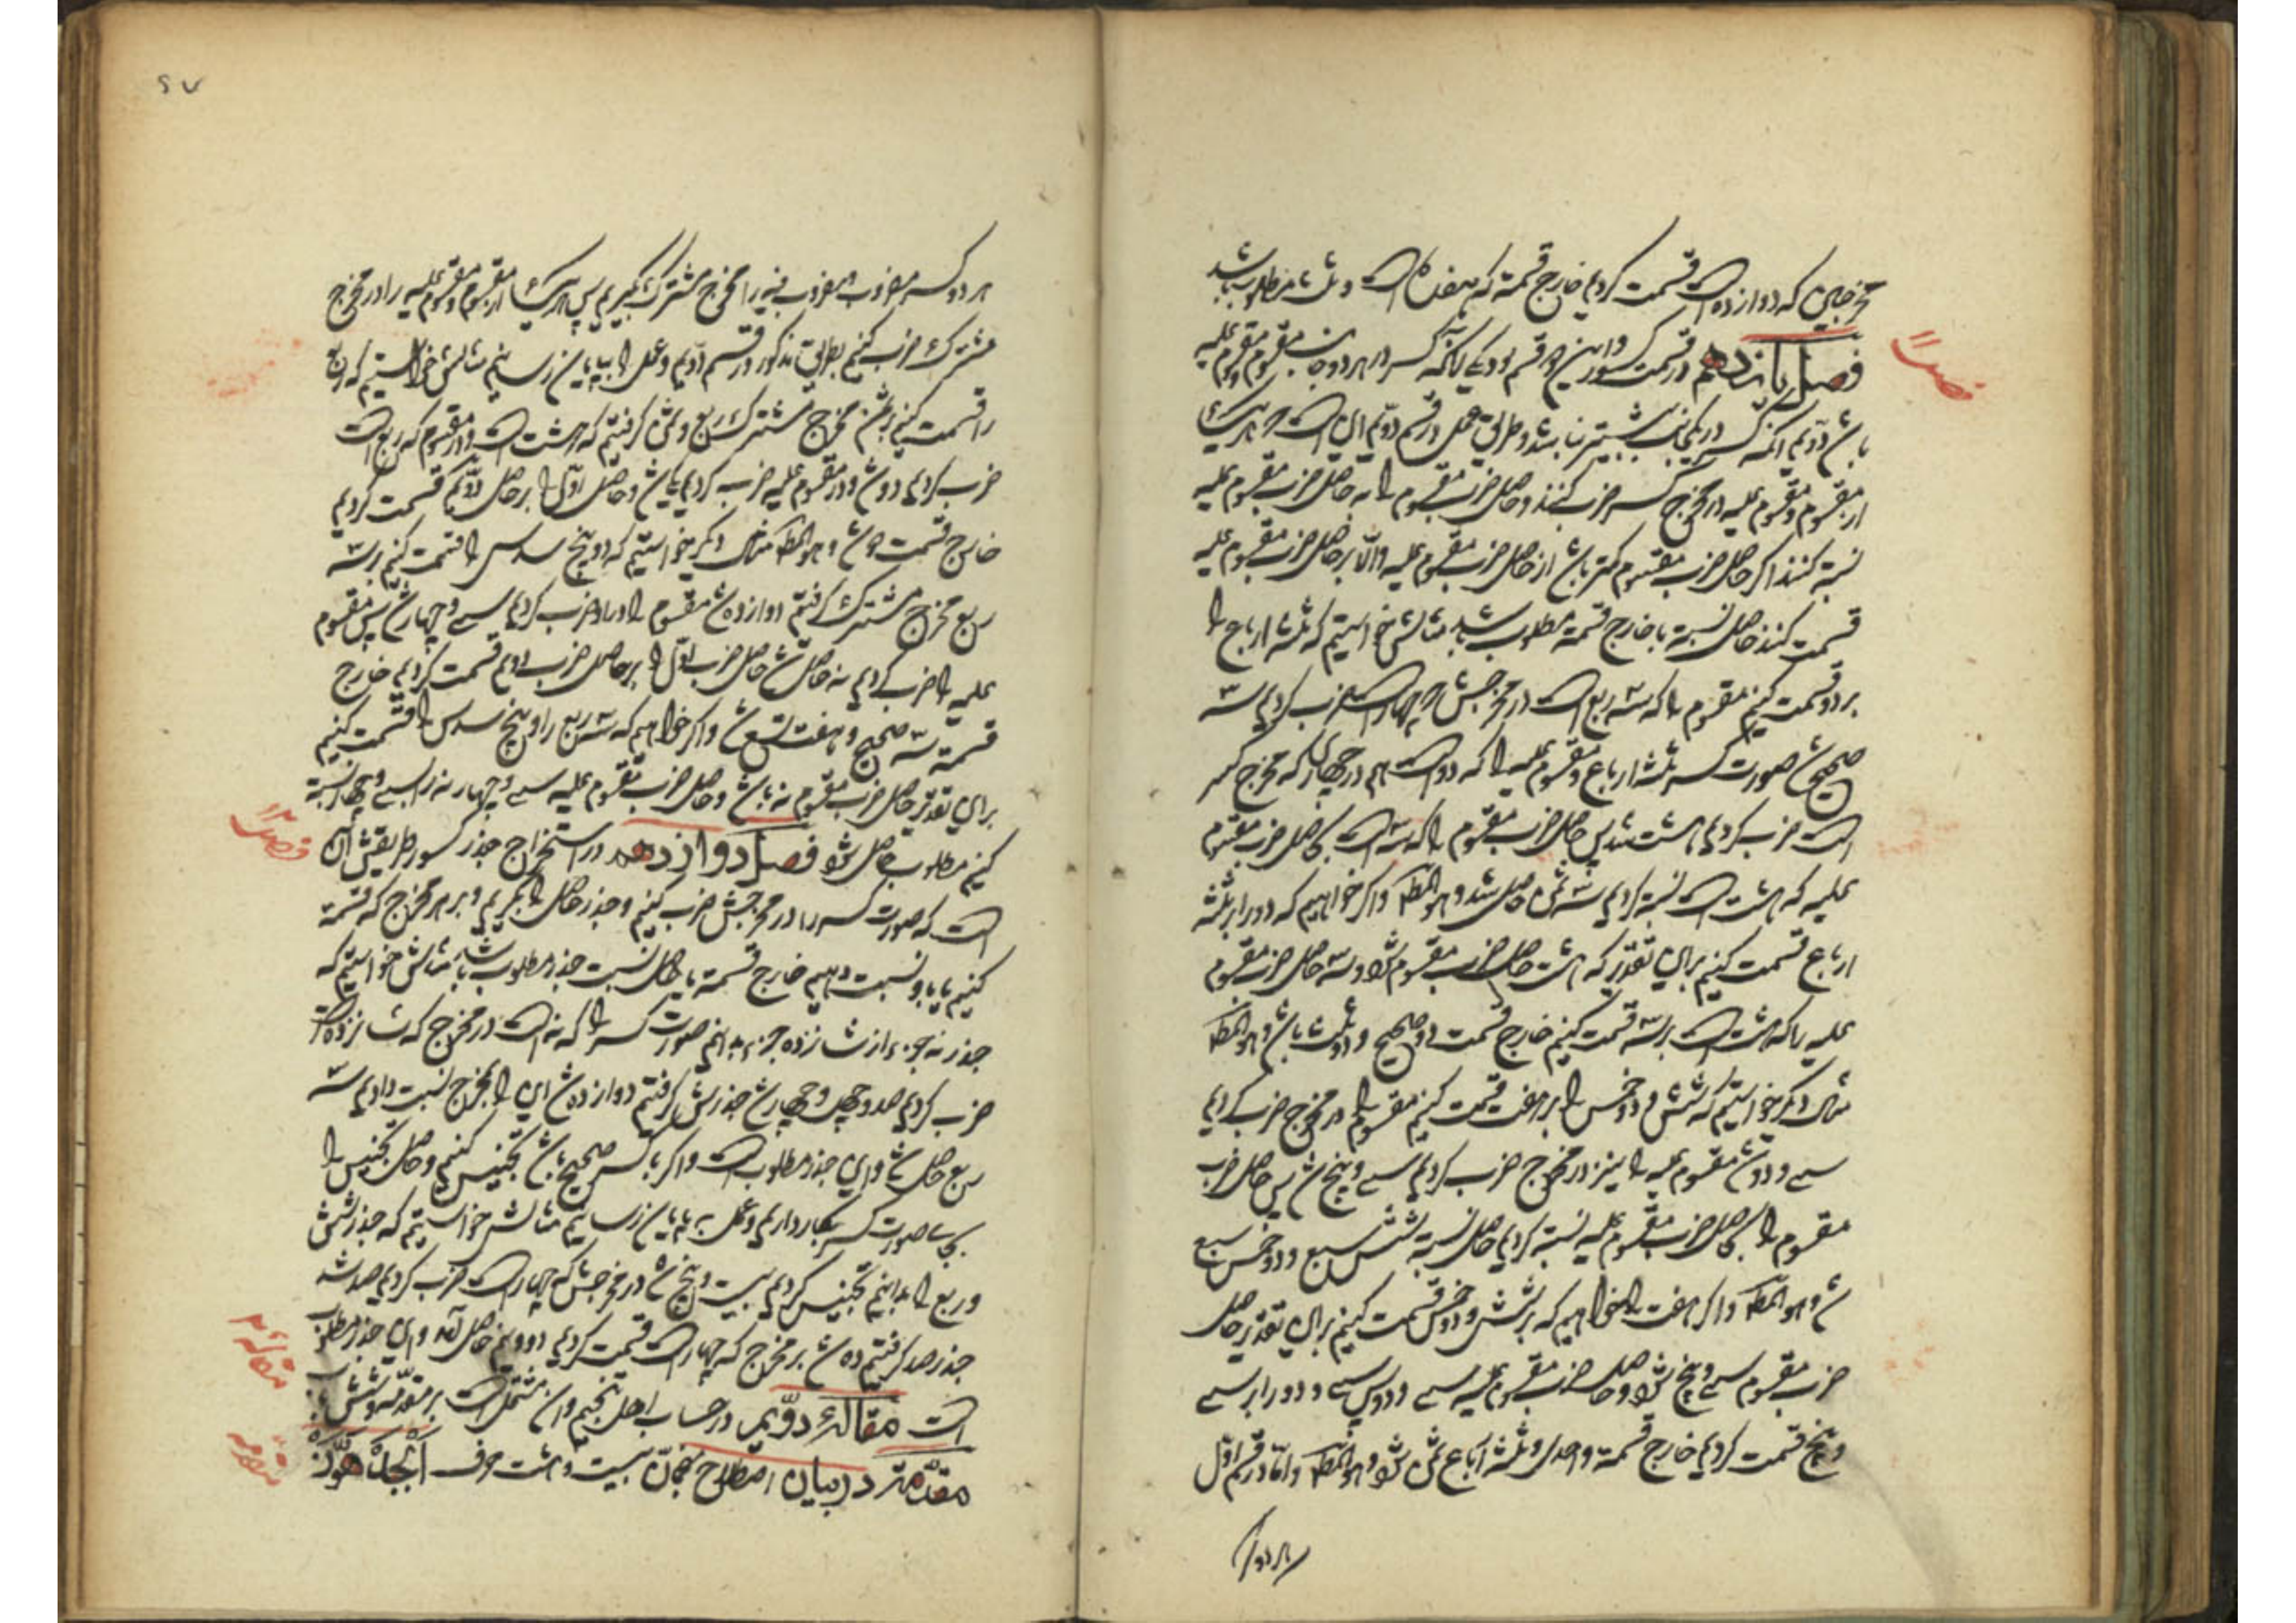 مخرجین که دوازده است قسمت کردیم خارج قسمة که هفده است و ثلث مطلوب باشد
فصل یازدهم در قسمت کسور و این بر دو قسم بود یکی آنکه کسر در هر دو جانب مقسوم و مقسوم علیه
باشد دویم آنکه کسر در یکجانب بیشتر نباشد و طریق عمل در قسم دویم این است که هر یک
از مقسوم و مقسوم علیه در مخرج کسر ضرب کنند و حاصل ضرب مقسوم را به حاصل ضرب مقسوم علیه
نسبة کنند اگر حاصل ضرب مقسوم کمتر باشد از حاصل ضرب مقسوم علیه والا بر حاصل ضرب مقسوم علیه
قسمت کنند حاصل نسبة یا خارج قسمة مطلوب باشد مثالش خواستیم که ثلثه ارباع را
بر دو قسمت کنیم مقسوم را که سه ربع است در مخرجش که چهار است ضرب کردیم سه
صحیح شد صورت کسر ثلثه ارباع و مقسوم علیه را که دو است هم در چهار که مخرج کسر
است ضرب کردیم هشت شد پس حاصل ضرب مقسوم را که سه است بحاصل ضرب مقسوم
علیه که هشت است نسبة کردیم سه ثمن حاصل شد و هو المط و اگر خواهیم که دو را بر ثلثه
ارباع قسمت کنیم برای تقدیر که هشت حاصل ضرب مقسوم شد و سه حاصل ضرب مقسوم
علیه را که هشت است بر سه قسمت کنیم خارج قسمت دو صحیح و دو ثلث باشد و هو المط
مثال دیگر خواستیم که شش و دو خمس را بر هفت قسمت کنیم مقسوم را در مخرج ضرب کردیم
سی و دو شد مقسوم علیه را نیز در مخرج ضرب کردیم سی و پنج شد پس حاصل ضرب
مقسوم را بحاصل ضرب مقسوم علیه نسبة کردیم حاصل نسبة شش سبع و دو خمس سبع
شد و هو المط و اگر هفت را خواهیم که بر شش و دو خمس قسمت کنیم برای تقدیر حاصل
ضرب مقسوم سی و پنج شد و حاصل ضرب مقسوم علیه سی و دو پس سی و دو را بر سی
و پنج قسمت کردیم خارج قسمة واحد و ثلثه ارباع ثمن شد و هو المط و اما در قسم اول
هر دو
فصل ۱۱
۶۷
هر دو کسر مضروب مضروب فیه را مخرج مشترک بگیریم پس هر یک از مقسوم و مقسوم علیه را در مخرج
مشترک ضرب کنیم بطریق مذکور در قسم دویم و عمل را بپایان رسانیم مثالش خواستیم که ربع
را قسمت کنیم بر ثمن مخرج مشترک ربع و ثمن گرفتیم که هشت است در مقسوم که ربع است
ضرب کردیم دو شد و در مقسوم علیه ضرب کردیم یک شد و حاصل اول را بر حاصل دویم قسمت کردیم
خارج قسمت دو شد و هو المط مثال دیگر خواستیم که دو پنج سدس را قسمت کنیم بر سه
ربع مخرج مشترک گرفتیم دوازده شد مقسوم را در او ضرب کردیم سی و چهار شد پس مقسوم
علیه را ضرب کردیم نه حاصل شد حاصل ضرب اول را بر حاصل ضرب دویم قسمت کردیم خارج
قسمة سه صحیح و هفت تسع شد و اگر خواهیم که سه ربع را بر دو پنج سدس قسمت کنیم
برای تقدیر حاصل ضرب مقسوم نه باشد و حاصل ضرب مقسوم علیه سی و چهار نه را بسی و چهار نسبة
کنیم مطلوب حاصل شود فصل دوازدهم در استخراج جذر کسور طریقش آن
است که صورت کسر را در مخرجش ضرب کنیم و جذر حاصل را بگیریم و بر مخرج که قسمة
کنیم یا باو نسبت دهیم خارج قسمة یا حاصل نسبت جذر مطلوب باشد مثالش خواستیم که
جذر نه جزء از شانزده جزء بدانیم صورت کسر را که نه است در مخرج که شانزده است
ضرب کردیم صد و چهل و چهار شد جذرش گرفتیم دوازده شد این را بمخرج نسبت دادیم سه
ربع حاصل شد و این جذر مطلوب است و اگر با کسر صحیح باشد تجنیس کنیم و حاصل تجنیس را
بجای صورت کسر بکار داریم و عمل به پایان رسانیم مثالش خواستیم که جذر شش
و ربع را بدانیم تجنیس کردیم بیست و پنج شد در مخرجش که چهار است ضرب کردیم صد شد
جذر صد گرفتیم ده شد بر مخرج که چهار است قسمت کردیم دو و نیم حاصل آمد و این جذر مطلوب
است مقالهٔ دویم در حساب اهل تنجیم و آن مشتمل است بر مقدمه و شش باب
مقدمه در بیان اصطلاح منجمان بیست و هشت حرف ابجد هوز
فصل ۱۲
مقاله ۲
مقدمه